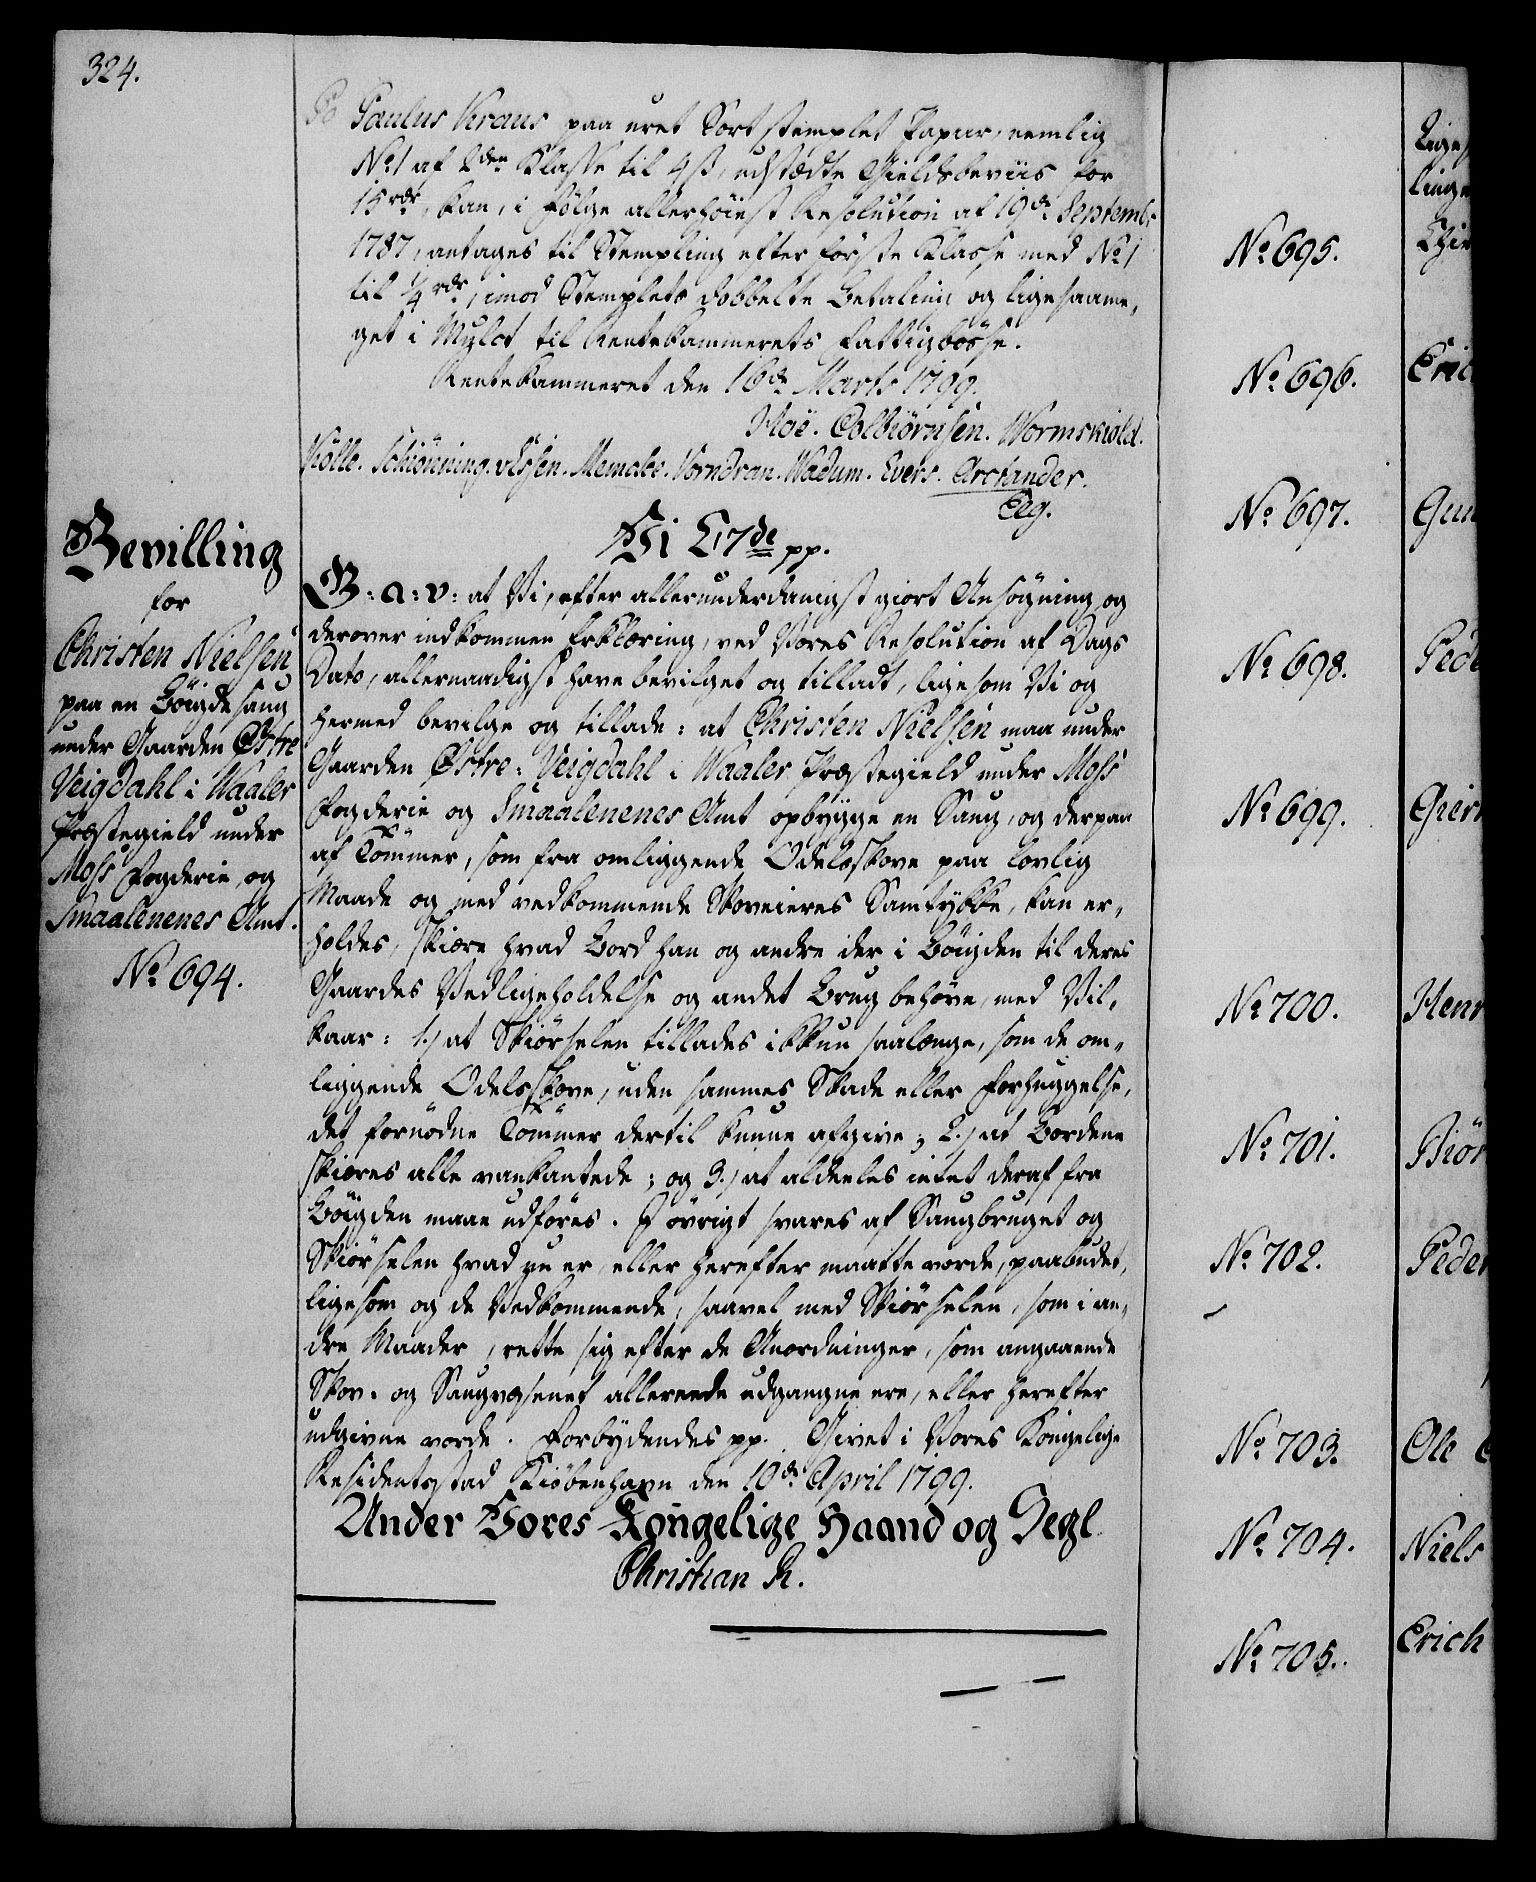 324.
Paulus Kraus paa uret Sort stemplet Papiir, nemlig
No 1 af 2den Klasse til 4 ß, udstædte Gieldsbeviis for
15 rdr, kan, i Følge allerhöiest Resolution af 19de Septembr
1787, antages til Stempling efter første Klasse med No 1
til 1/4 rdr, imod Stemplets dobbelte Betaling og ligesaame,
get i Mulct til Rentekammerets Fattigbøsse.
Rentekammeret den 16de Marts 1799.
Hoë. Colbiørnsen. Wormskiold.
Kölle. Schiönning. v Essen. Memcke. Vorndran. Wadum. Evers. Arctander.
Eeg.
Bevilling
for
Christen Nielsen
paa en Böigdesaug
under Gaarden Østre
Veigdahl i Waaler
Præstegield under
Moss Fogderie, og
Smaalenenes Amt.
No 694.
Vi C: 7de pp.
G: a: v: at Vi, efter allerunderdanigst giort Ansøgning og
derover indkommen Erklæring, ved Vores Resolution af Dags
Dato, allernaadigst have bevilget og tilladt, ligesom Vi og
hermed bevilge og tillade: at Christen Nielsen maa under
Gaarden Østre-Veigdahl i Waaler Præstegield under Moss
Fogderie og Smaalenenes Amt opbygge en Saug, og derpaa
af Tömmer, som fra omliggende Odelsskove paa lovlig
Maade og med vedkommende Skoveieres Samtykke, kan er,
holdes, skiære hvad Bord han og andre der i Böigden til deres
Gaardes Vedligeholdelse og andet Brug behöve, med Vil,
kaar: 1.) at Skiörselen tillades ikkun saalænge, som de om,
liggende Odelsskove, uden sammes Skade eller Forhuggelse,
det fornödne Tömmer dertil kunne afgive; 2.) at Bordene
skiæres alle vankantede; og 3.) at aldeeles intet deraf fra
Böigden maae udföres. I övrigt svares af Saugbruget og
Skiörselen hvad nu er, eller herefter maatte vorde, paabudet,
ligesom og de Vedkommende, saavel med Skiörselen, som i an,
dre Maader, rette sig efter de Anordninger, som angaaende
Skov- og Saugvæsenet allereede udgangne ere, eller herefter
udgivne vorde. Forbydendes pp. Givet i Vores Kongelige
Residentsstad Kiöbenhavn den 10de April 1799.
Under Vores Kongelige Haand og Segl
Christian R.
No 695.
No 696.
No 697.
No 698.
No 699.
No 700.
No 701.
No 702.
No 703.
No 704.
No 705.
Ole
Niels
Erich